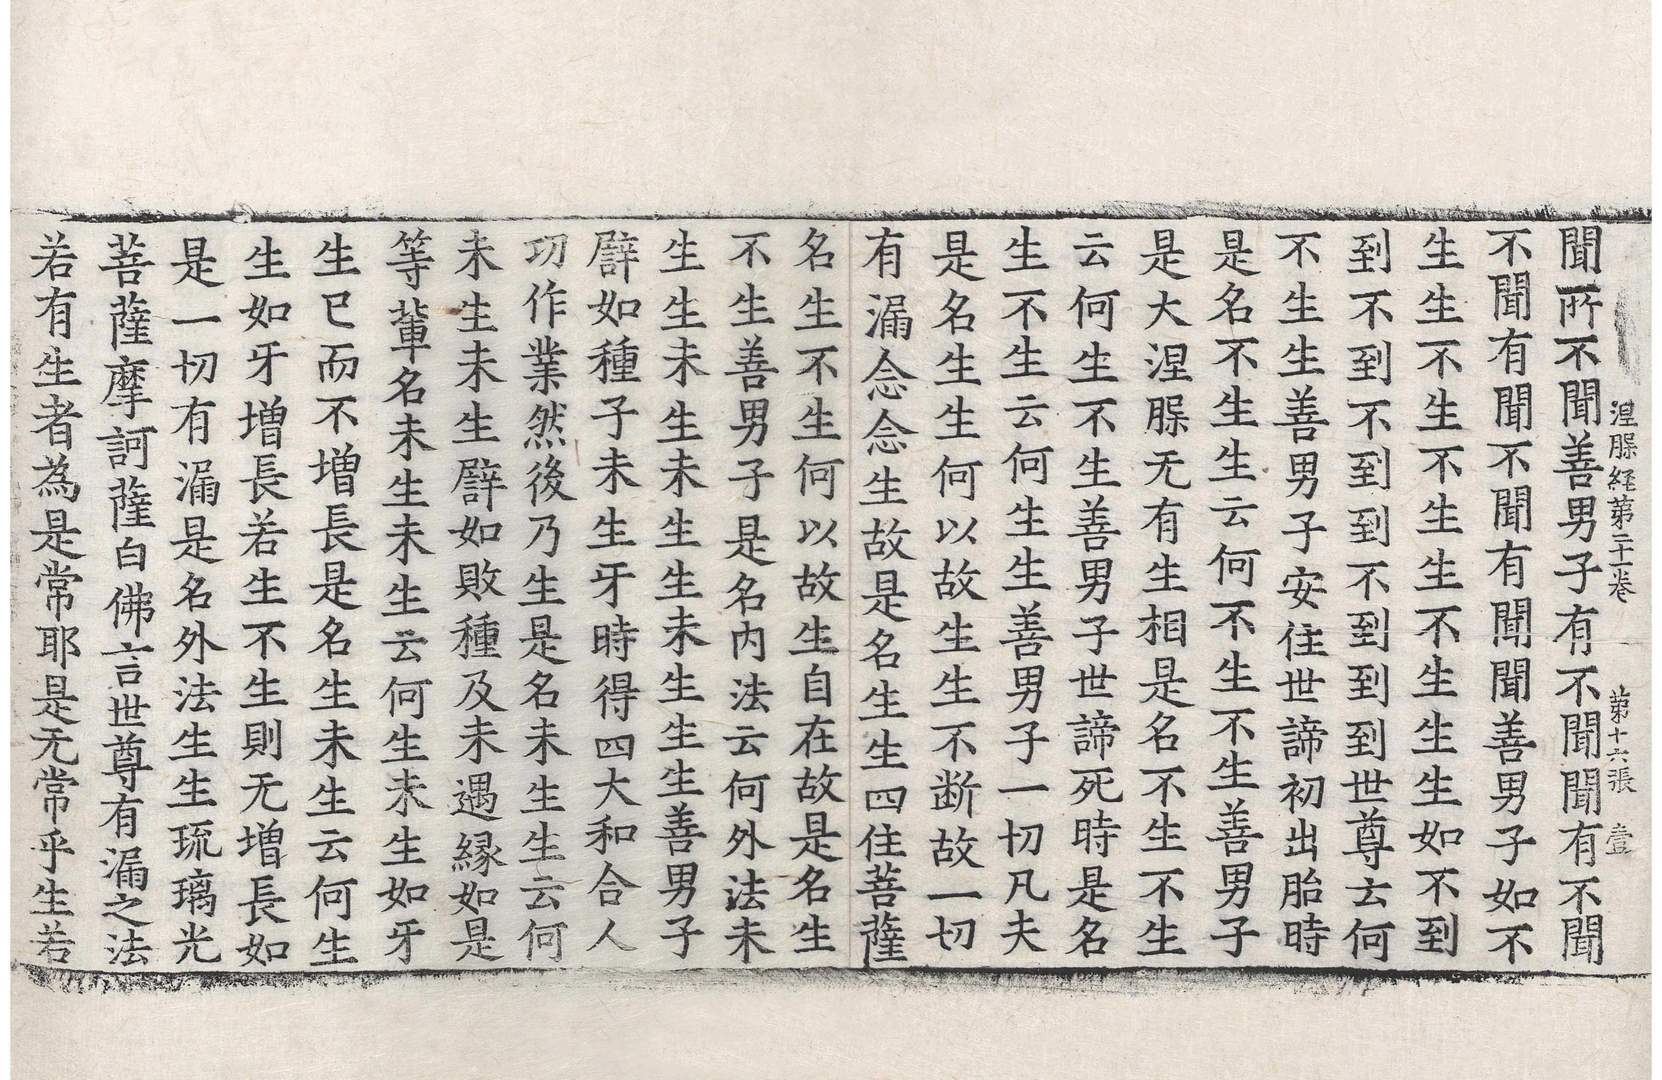 涅槃経第二十一卷 第十六張 壹
聞所不聞善男子有不聞聞有不聞
不聞有聞不聞有聞聞善男子如不
生生不生不生生不生生生如不到
到不到不到到不到到到世尊云何
不生生善男子安住世諦初出胎時
是名不生生云何不生不生善男子
是大涅槃无有生相是名不生不生
云何生不生善男子世諦死時是名
生不生云何生生善男子一切凡夫
是名生生何以故生生不断故一切
有漏念念生故是名生生四住菩薩
名生不生何以故生自在故是名生
不生善男子是名内法云何外法未
生生未生未生生未生生生善男子
譬如種子未生牙時得四大和合人
功作業然後乃生是名未生生云何
未生未生譬如敗種及未遇縁如是
等軰名未生未生云何生未生如牙
生已而不增長是名生未生云何生
生如牙增長若生不生則无增長如
是一切有漏是名外法生生琉璃光
菩薩摩訶薩白佛言世尊有漏之法
若有生者為是常耶是无常乎生若